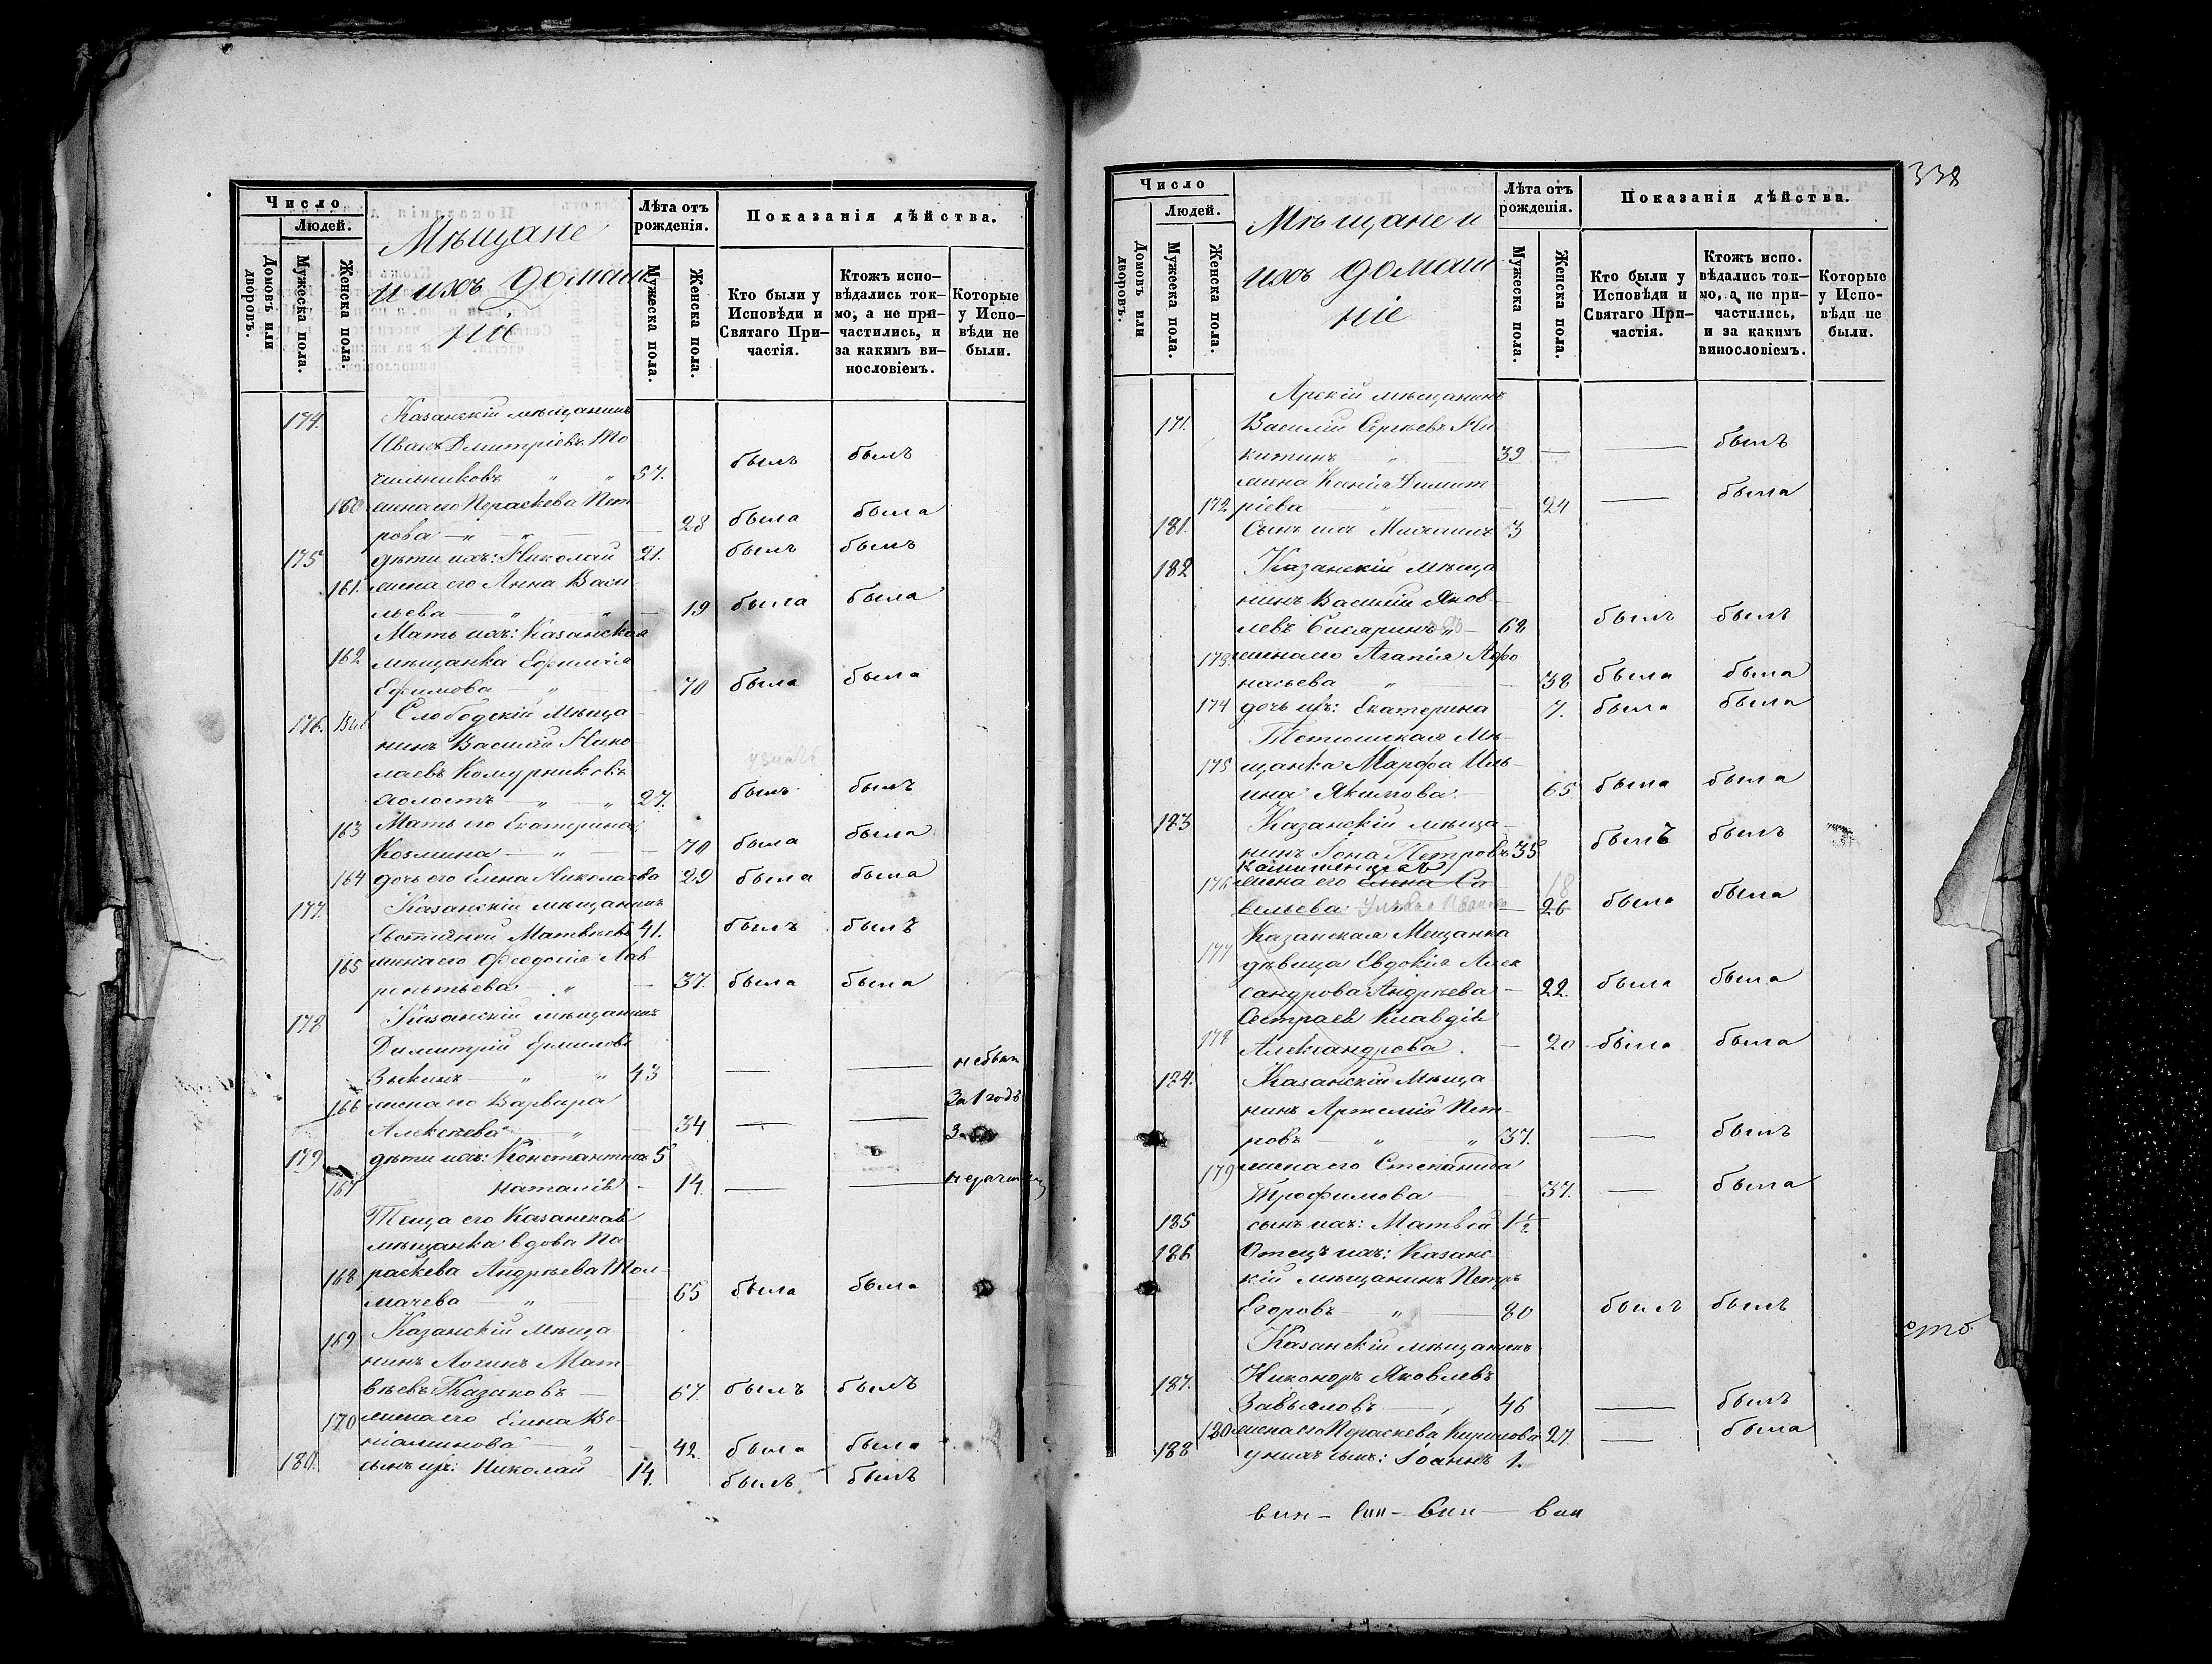 Число
Людей.
Домовъ или дворовъ.
Мужеска пола.
Женска пола.
Мѣщане
и ихъ домаш
ніе
Лѣта отъ рожденія.
Мужеска пола.
Женска пола.
Показанія дѣйства.
Кто были у Исповѣди и Святаго При-частія.
Ктожъ испо-вѣдались ток-мо, а не при-частились, и за какимъ ви-нословіемъ.
Которые у Испо-вѣди не были.
174. Казанскій мѣщанинъ
Иванъ Дмитріевъ То
чильниковъ „ „ 57. былъ былъ
160 жена его Параскева Пет
рова — „ — 28 была была
175 дѣти ихъ: Николай 21. былъ былъ
161. жена его Анна Васи
льева — „ „ — 19 была была
Мать ихъ: Казанская
162 мѣщанка
Ефимова — „ — 70 была была
176. Слободскій Мѣща
нинъ Василій Нико
лаевъ
холостъ — „ — „ 27. былъ былъ
163 Мать его Екатерина
Козмина — „ — 70 была была
164 дочь его Елена Николаева 29 была была
177. Казанскій мѣщанинъ
Матвѣевъ 41. былъ былъ
165 жена его Феодосія Лав
рентьева „ — 37. была была
178 Казанскій мѣщанинъ
Димитрій Ермиловъ
Зыкинъ — „ „ 43 — —
166 жена его Варвара За 1 годъ
Алексѣева „ — 34 — —
179 дѣти ихъ: Константинъ 5
167 Наталія — 14. — —
Теща его Казанская
мѣщанка вдова Па
168 раскева Андрѣева Тол-
мачева — „ — 65 была была
169 Казанскій Мѣща
нинъ Логинъ Мат-
вѣевъ Казаковъ — 67. былъ былъ
170 жена его Елена Ве-
ніаминова „ — 42. была была
180. сынъ ихъ: Николай 14. былъ былъ
338
Число
Людей.
Домовъ или дворовъ.
Мужеска пола.
Женска пола.
Мѣщане и
ихъ домаш
ніе
Лѣта отъ рожденія.
Мужеска пола.
Женска пола.
Показанія дѣйства.
Кто были у Исповѣди и Святаго При-частія.
Ктожъ испо. вѣдались ток-мо, а не при-частились, и за какимъ винословіемъ.
Которые у Испо-вѣди не были.
Арскій мѣщанинъ
171. Василій Сергѣевъ Ни
китинъ „ 39 — — былъ
жена Ксенія Димит-
172 ріева „ — 24 — была
181. Сынъ ихъ Михаилъ 3
182 Казанскій Мѣща
нинъ Василій Яков-
левъ „ — 68 былъ былъ
173. жена его Агапія Афо
насьева „ — 38 была была
174 дочь ихъ: Екатерина 7. была была
Тетюшская Мѣ-
175 щанка Марфа Иль-
ина Якимова — 65 была была
183 Казанскій мѣща-
нинъ Іона Петровъ 35 былъ былъ
176 жена его Елена Са 18
вельева Иванова — 26 была была
Казанская Мещанка
177 дѣвица Евдокія Алек
сандрова Андрѣева — 22. была была
Сестра ея Клавдія
178 Александрова. — 20 была была
184. Казанскій Мѣща
нинъ Артемій Пет-
ровъ „ „ 37. — былъ
179 жена его Степанида
Трофимова — 37. — была
185 сынъ ихъ: Матвѣй 1½
186 Отецъ ихъ: Казанс
кій мѣщанинъ Петръ
Егоровъ „ — 80 былъ былъ
Казанскій мѣщанинъ
187. Никоноръ Яковлевъ
Завьяловъ — „ 46 — былъ
180 жена его Параскева Кирилова 27. — была
188 у нихъ сынъ: Іоаннъ 1.